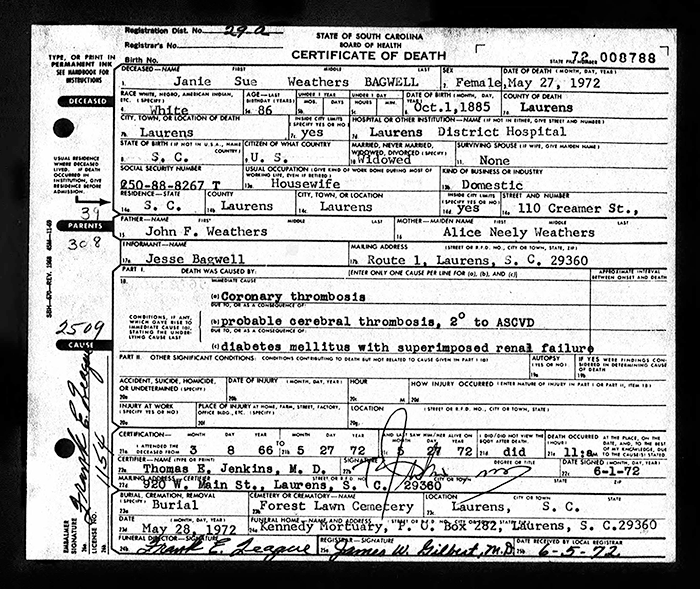 Registration Dist. No. 29-a
STATE OF SOUTH CAROLINA
BOARD OF HEALTH
CERTIFICATE OF DEATH
Registrar's No.
Birth No.
72 008788
STATE FILE NUMBER
TYPE, OR PRINT IN
PERMANENT INK
SEE HANDBOOK FOR
INSTRUCTIONS
DECEASED—NAME FIRST MIDDLE LAST SEX DATE OF DEATH (MONTH, DAY, YEAR)
1. Janie Sue Weathers BAGWELL 2. Female 3. May 27, 1972
DECEASED
RACE WHITE, NEGRO, AMERICAN INDIAN, ETC. (SPECIFY) AGE—LAST BIRTHDAY (YEARS) UNDER 1 YEAR MOS. DAYS UNDER 1 DAY HOURS MIN. DATE OF BIRTH (MONTH, DAY, YEAR) COUNTY OF DEATH
4. White 5a. 86 Oct.1,1885 Laurens
CITY, TOWN, OR LOCATION OF DEATH INSIDE CITY LIMITS (SPECIFY YES OR NO) HOSPITAL OR OTHER INSTITUTION—NAME (IF NOT IN EITHER, GIVE STREET AND NUMBER)
7b. Laurens 7c. yes 7d. Laurens District Hospital
USUAL RESIDENCE
WHERE DECEASED
LIVED. IF DEATH
OCCURRED IN
INSTITUTION, GIVE
RESIDENCE BEFORE
ADMISSION.
STATE OF BIRTH (IF NOT IN U.S.A., NAME COUNTRY) CITIZEN OF WHAT COUNTRY MARRIED, NEVER MARRIED, WIDOWED, DIVORCED (SPECIFY) SURVIVING SPOUSE (IF WIFE, GIVE MAIDEN NAME)
8. S. C. 9. U. S. 10. Widowed 11. None
SOCIAL SECURITY NUMBER USUAL OCCUPATION (GIVE KIND OF WORK DONE DURING MOST OF WORKING LIFE, EVEN IF RETIRED) KIND OF BUSINESS OR INDUSTRY
250-88-8267 T Housewife Domestic
RESIDENCE—STATE COUNTY CITY, TOWN, OR LOCATION INSIDE CITY LIMITS (SPECIFY YES OR NO) STREET AND NUMBER
14a. S. C. 14b. Laurens 14c. Laurens 14d. yes 14e. 110 Creamer St.,
39
PARENTS
308
FATHER—NAME FIRST MIDDLE LAST MOTHER—MAIDEN NAME FIRST MIDDLE LAST
15. John F. Weathers 16. Alice Neely Weathers
INFORMANT—NAME MAILING ADDRESS (STREET OR R.F.D. NO., CITY OR TOWN, STATE, ZIP)
17a. Jesse Bagwell 17b. Route 1, Laurens, S. C. 29360
PART I. DEATH WAS CAUSED BY: [ENTER ONLY ONE CAUSE PER LINE FOR (a), (b), AND (c)] APPROXIMATE INTERVAL BETWEEN ONSET AND DEATH
18. IMMEDIATE CAUSE
(a) Coronary thrombosis
DUE TO, OR AS A CONSEQUENCE OF:
CONDITIONS, IF ANY,
WHICH GAVE RISE TO
IMMEDIATE CAUSE (a),
STATING THE UNDER-
LYING CAUSE LAST
(b) probable cerebral thrombosis, 2° to ASCVD
DUE TO, OR AS A CONSEQUENCE OF:
(c) diabetes mellitus with superimposed renal failure
2509
CAUSE
PART II. OTHER SIGNIFICANT CONDITIONS: CONDITIONS CONTRIBUTING TO DEATH BUT NOT RELATED TO CAUSE GIVEN IN PART I (a) AUTOPSY (YES OR NO) IF YES WERE FINDINGS CONSIDERED IN DETERMINING CAUSE OF DEATH
19a. 19b.
ACCIDENT, SUICIDE, HOMICIDE, OR UNDETERMINED (SPECIFY) DATE OF INJURY (MONTH, DAY, YEAR) HOUR HOW INJURY OCCURRED (ENTER NATURE OF INJURY IN PART I OR PART II, ITEM 18)
20a. 20b. 20c. M 20d.
INJURY AT WORK (SPECIFY YES OR NO) PLACE OF INJURY AT HOME, FARM, STREET, FACTORY, OFFICE BLDG., ETC. (SPECIFY) LOCATION (STREET OR R.F.D. NO., CITY OR TOWN, STATE)
CERTIFICATION— MONTH DAY YEAR MONTH DAY YEAR AND LAST SAW HIM/HER ALIVE ON MONTH DAY YEAR I DID/DID NOT VIEW THE BODY AFTER DEATH. DEATH OCCURRED (HOUR) AT THE PLACE, ON THE DATE, AND, TO THE BEST OF MY KNOWLEDGE, DUE TO THE CAUSE(S) STATED
I ATTENDED THE DECEASED FROM 3 8 66 TO 5 27 72 5 27 72 did
CERTIFIER—NAME (TYPE OR PRINT) SIGNATURE DEGREE OR TITLE DATE SIGNED (MONTH, DAY, YEAR)
22a. Thomas E. Jenkins, M. D. 6-1-72
MAILING ADDRESS—CERTIFIER STREET OR R.F.D. NO. CITY OR TOWN
920 W. Main St., Laurens, S. C. 29360
BURIAL, CREMATION, REMOVAL (SPECIFY) CEMETERY OR CREMATORY—NAME LOCATION CITY OR TOWN STATE
Burial Forest Lawn Cemetery Laurens, S. C.
DATE (MONTH, DAY, YEAR) FUNERAL HOME—NAME AND ADDRESS
May 28, 1972 Kennedy Mortuary, P. O. Box 282, Laurens, S. C.29360
FUNERAL DIRECTOR—SIGNATURE REGISTRAR—SIGNATURE DATE RECEIVED BY LOCAL REGISTRAR
Frank E. League James W. Gilbert, M.D. 6-5-72
EMBALMER SIGNATURE Frank E. League
LICENSE NO. 1154